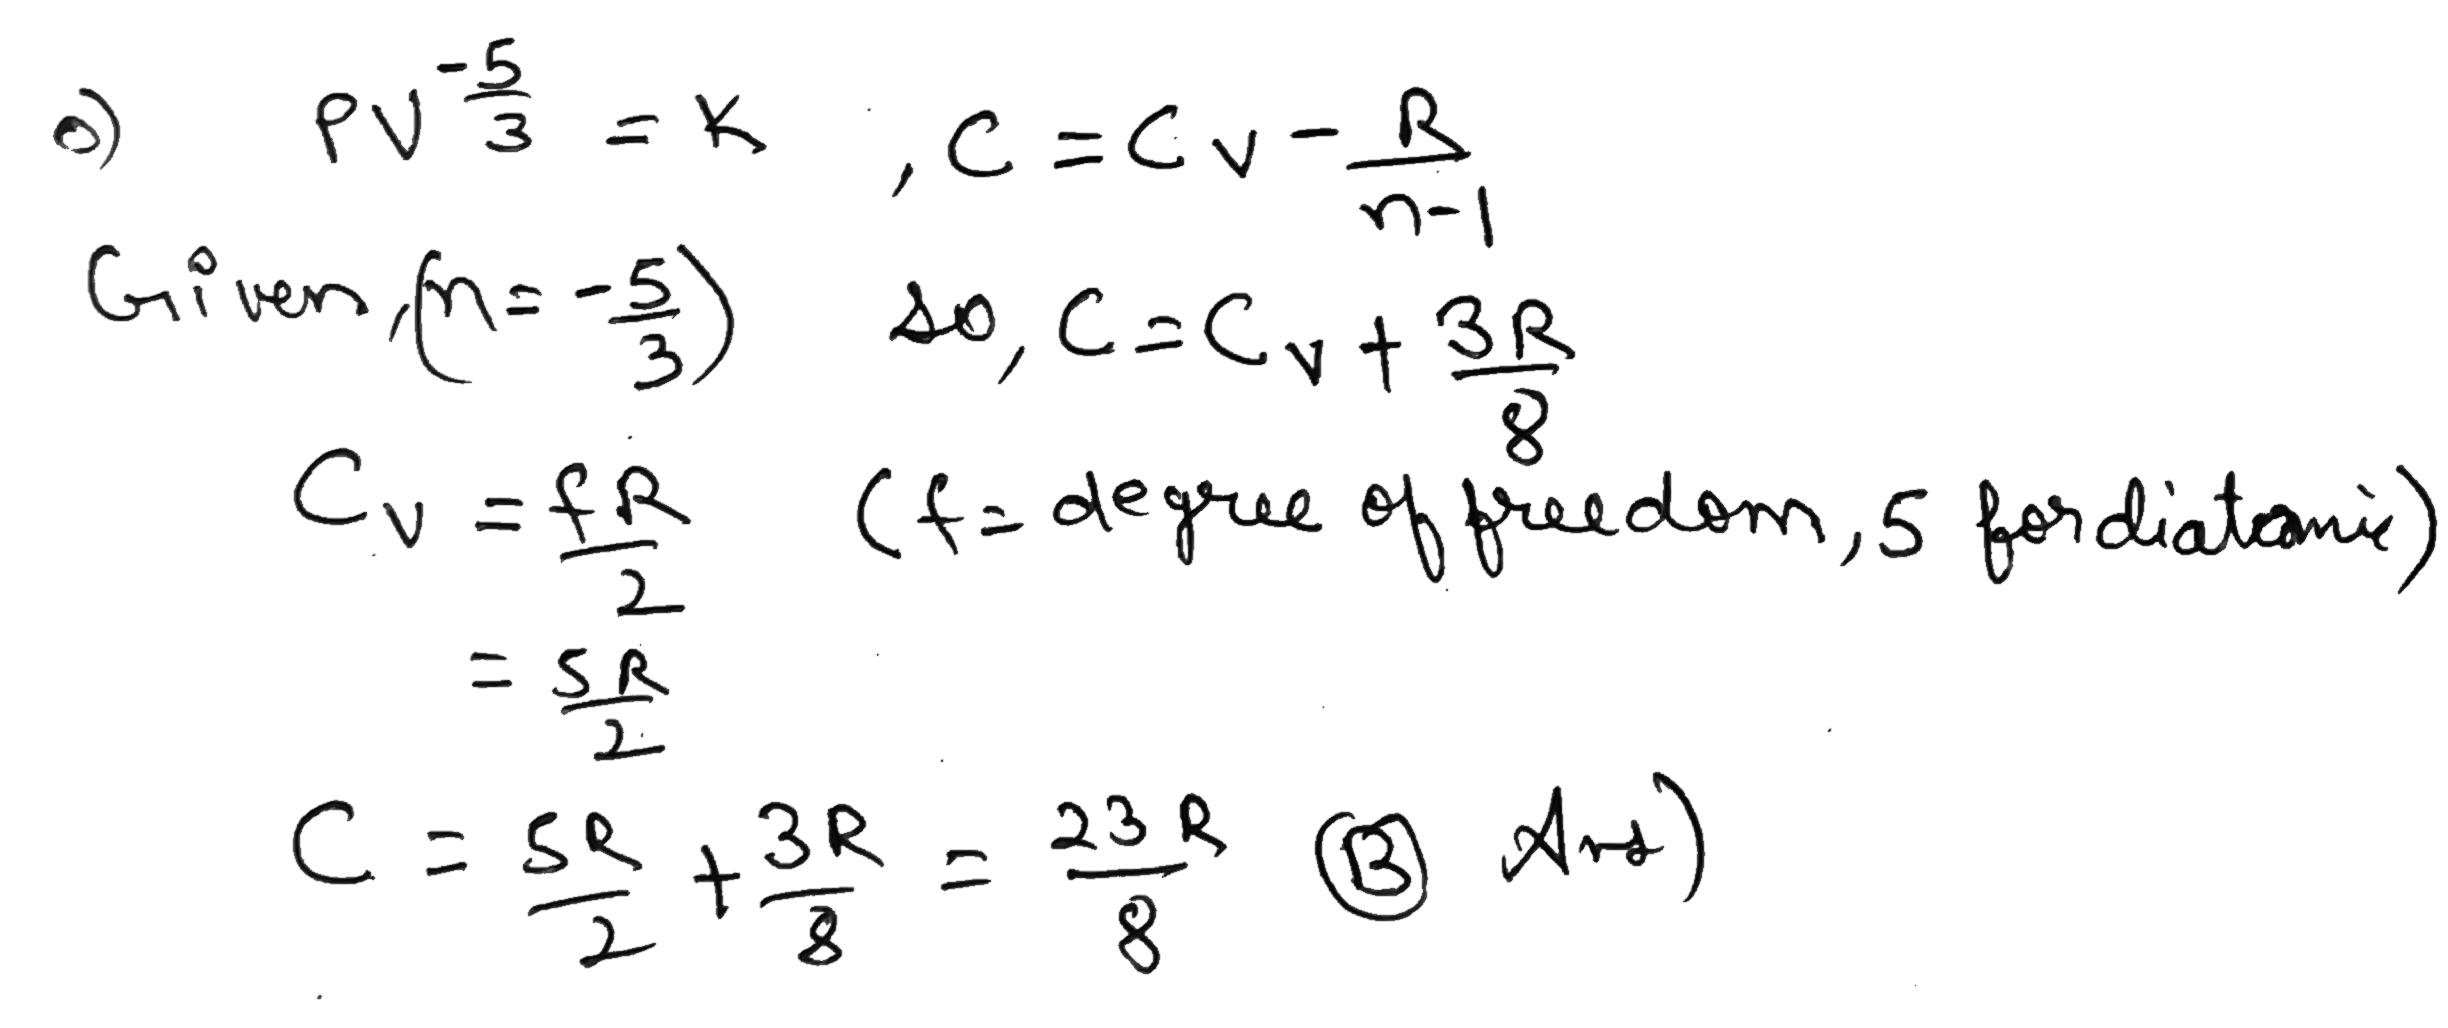 o) PV^(-5/3) = K , C = Cv - R/(n-1)
Given, (n = -5/3) so, C = Cv + 3R/8
Cv = fR/2 (f = degree of freedom, 5 for diatomic)
= 5R/2
C = 5R/2 + 3R/8 = 23R/8 (B) Ans)